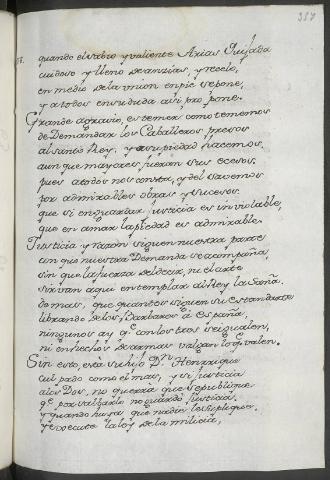 357
quando el sabio y valiente Arias Quijada
cuidoso y lleno de ansias, y recelo,
en medio de la union en pie se pone,
y a todos en su duda asi pro pone.
Grande agravio, es temer como tememos
de Demandar los Caballeros presos
al santo Rey, y a su piedad hacemos,
aun que mayores fueran sus ecesos.
pues a todos nos consta, y del savemos
por admirables obras y sucesos.
que si en guardar justicia es inviolable,
que en amar la piedad es admirable.
Justicia y razon siguen nuestra parte
con que nuestra Demanda se acompaña,
sin que la fuerza del decir, ni el arte
sirvan aqui en templar al Rey la Saña.
demas, que quantos siguen su estandarte
librando de los Barbaros à España,
ningunos ay q.e con los tres se igualen,
ni en hechos de armas valgan lo q.e valen.
Sin esto, està su hijo D.n Henrrique
culpado como el mas, y si justicia
a los Dos, no querrà que se publique
q.e por salvarlo no guardò justicia.
y quando haya que nadie le suplique,
y execute la ley de la milicia,